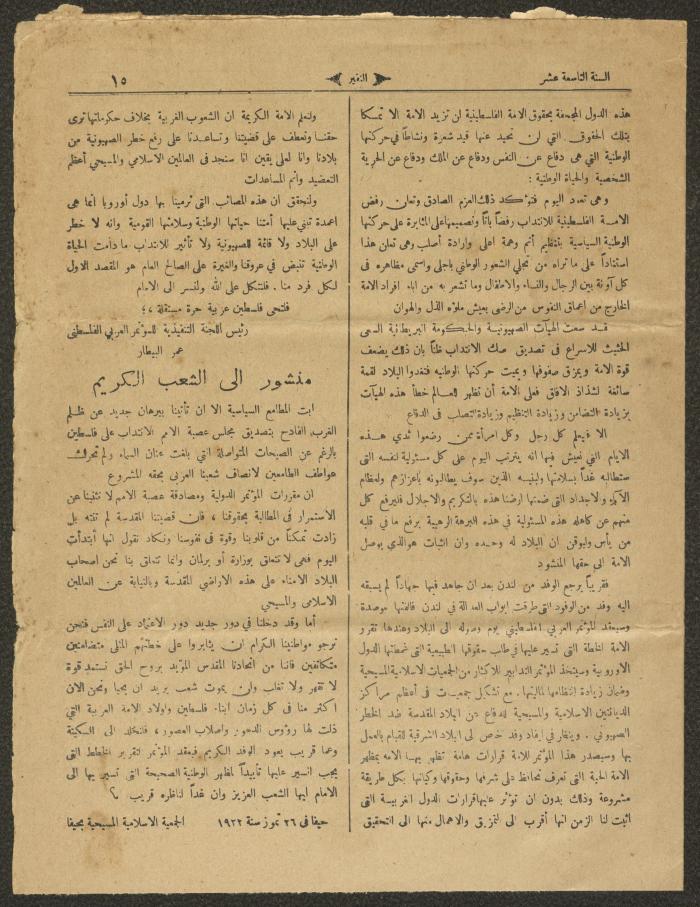 السنة التاسعة عشر
النفير
١٥
هذه الدول المجحفة بحقوق الامة الفلسطينية لن تزيد الامة الا تمسكا
بتلك الحقوق التي لن تحيد عنها قيد شعرة ونشاطاً في حركتها
الوطنية التي هي دفاع عن النفس ودفاع عن الملك ودفاع عن الحرية
الشخصية والحياة الوطنية :
وهي تعود اليوم فتؤكد ذلك العزم الصادق وتعلن رفض
الامة الفلسطينية للانتداب رفضاً باتاً وتصميمها على المثابرة على حركتها
الوطنية السياسية بتنظيم أتم وهمة اعلى وارادة أصلب وهي تعلن هذا
استناداً على ما تراه من تجلي الشعور الوطني باجلى واسمى مظاهره في
كل آونة بين الرجال والنساء والاطفال وما تشعر به من اباء افراد الامة
الخارج من اعماق النفوس من الرضى بعيش ملؤه الذل والهوان
قد سعت الهيآت الصهيونية والحكومة البريطانية السعي
الحثيث للاسراع في تصديق صك الانتداب ظناً بان ذلك يضعف
قوة الامة ويمزق صفوفها ويميت حركتها الوطنيه فتغدوا البلاد لقمة
سائغة لشذاذ الافاق فعلى الامة أن تظهر للعالم خطأ هذه الهيآت
بزيادة التضامن وزيادة التنظيم وزيادة التصلب في الدفاع
الا فليعلم كل رجل وكل امرأة ممن رضعوا ثدي هذه
الايام التي نعيش فيها انه يترتب اليوم على كل مسئولية لنفسه التي
ستطالبه غداً بسلامتها ولبنيه الذين سوف يطالبونه باعزازهم ولعظام
الآباء والاجداد التي ضمنها ارضنا هذه بالتكريم والاجلال فليرفع كل
منهم عن كاهله هذه المسئولية في هذه البرهة الرهيبة برفع ما في قلبه
من يأس وليوقن ان البلاد له وحده وان الثبات هو الذي يوصل
الامة الى حقها المنشود
فقريباً يرجع الوفد من لندن بعد ان جاهد فيها جهاداً لم يسبقه
اليه وفد من الوفود التي طرقت ابواب العدالة في لندن فالفتها موصدة
وسيعقد المؤتمر العربي الفلسطيني يوم وصوله الى البلاد وعندها تقرر
الامة الخطة التي تسير عليها في طلب حقوقها الطبيعية التي غمطتها الدول
الاوروبية وسيتخذ المؤتمر التدابير للاكثار من الجمعيات الاسلامية المسيحية
وضمان زيادة انتظامها لماليتها . مع تشكيل جمعيات في أعظم مراكز
الديانتين الاسلامية والمسيحية للدفاع عن البلاد المقدسة ضد الخطر
الصهيوني . وينظر في ايفاد وفد خاص الى البلاد الشرقية للقيام بالعمل
بها وسيصدر هذا المؤتمر للامة قرارات هامة تظهر بها الامة بمظهر
الامة الحية التي تعرف تحافظ على شرفها وحقوقها وكيانها بكل طريقة
مشروعة وذلك بدون ان تؤثر عليها قرارات الدول الغربية التي
اثبت لنا الزمن انها أقرب الى التمزيق والاهمال منها الى التحقيق
ولتعلم الامة الكريمة ان الشعوب الغربية بخلاف حكوماتها ترى
حقنا وتعطف على قضيتنا وتساعدنا على رفع خطر الصهيونية من
بلادنا وانا لعلى يقين انا سنجد في العالمين الاسلامي والمسيحي أعظم
التعضيد واتم المساعدات
ولنحقق ان هذه المصائب التي ترمينا بها دول أوروبا انما هي
اعمدة تبنى عليها أمتنا حياتها الوطنية وسلامتها القومية وانه لا خطر
على البلاد ولا قائمة للصهيونية ولا تأثير للانتداب ما دامت الحياة
الوطنية تنبض في عروقنا والغيرة على الصالح العام هو المقصد الاول
لكل فرد منا . فلنتكل على الله ولنسر الى الامام
فلتحى فلسطين عربية حرة مستقلة ،؛
رئيس اللجنة التنفيذية للمؤتمر العربي الفلسطيني
عمر البيطار
منشور الى الشعب الكريم
ابت المطامع السياسية الا ان تأتينا ببرهان جديد عن ظلم
الغرب الفادح بتصديق مجلس عصبة الامم الانتداب على فلسطين
بالرغم عن الصيحات المتواصلة التي بلغت عنان السماء ولم تحرك
عواطف الطامعين لانصاف شعبنا العربي بحقه المشروع
ان مقررات المؤتمر الدولية ومصادقة عصبة الامم لا تثنينا عن
الاستمرار في المطالبة بحقوقنا ، فان قضيتنا المقدسة لم تنته بل
زادت تمكناً من قلوبنا وقوة في نفوسنا ونكاد نقول انها أبتدأت
اليوم فهي لا تتعلق بوزارة أو برلمان وانما تتعلق بنا نحن اصحاب
البلاد الامناء على هذه الاراضي المقدسة وبالنيابة عن العالمين
الاسلامي والمسيحي
أما وقد دخلنا في دور جديد دور الاعتماد على النفس فنحن
نرجو مواطنينا الكرام ان يثابروا على خطتهم المثلى متضامنين
متكاتفين فاننا من اتحادنا المقدس المؤيد بروح الحق نستمد قوة
لا تقهر ولا تغلب ولن يموت شعب يريد ان يحيا ونحن الان
اكثر منا في كل زمان ابناء فلسطين واولاد الامة العربية التي
ذلت لها رؤوس الدهور واصلاب العصور ، فلنخلد الى السكينة
وعما قريب يعود الوفد الكريم فيعقد المؤتمر لتقرير الخطط التي
يجب السير عليها تأييداً لمظهر الوطنية الصحيحة التي تسير بها الى
الامام ايها الشعب العزيز وان غداً لناظره قريب ؟
حيفا في ٢٦ تموز سنة ١٩٢٢ الجمعية الاسلامية المسيحية بحيفا